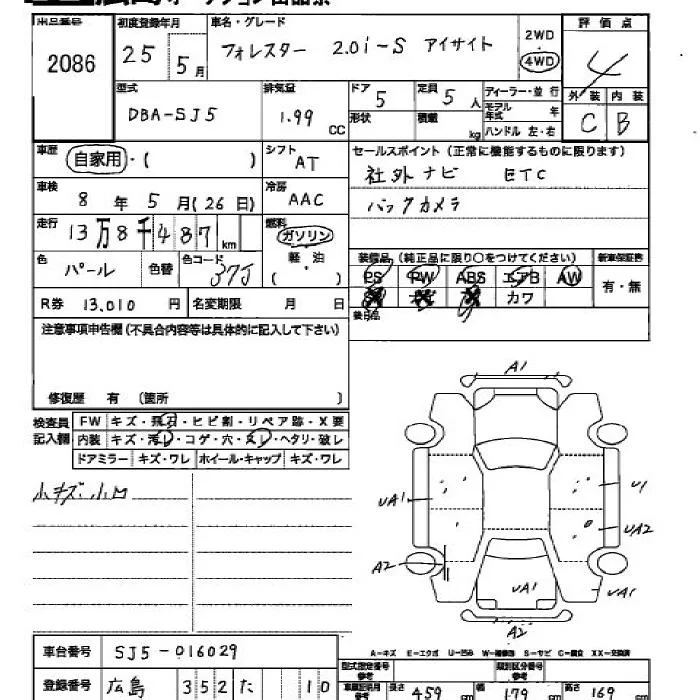 出品番号 2086
初度登録年月 25 5月
車名・グレード フォレスター 2.0i-S アイサイト
2WD 4WD
評価点 4
外装 C 内装 B
型式 DBA-SJ5
排気量 1.99 CC
ドア 5 形状
定員 5人 積載 kg
ディーラー・並行
モデル年式 年
ハンドル 左・右
車歴 自家用・( )
シフト AT
セールスポイント (正常に機能するものに限ります)
社外ナビ ETC
バックカメラ
車検 8年5月(26日)
冷房 AAC
走行 13万8千487km
燃料 ガソリン 軽・油 ( )
色 パール 色替 色コード 37J
装備品 (純正品に限り○をつけてください) 新車保証書
PS PW ABS エアB AW
カワ
有・無
装備品
R券 13,010円 名変期限 月 日
注意事項申告欄(不具合内容等は具体的に記入して下さい)
修復歴 有 (箇所 )
検査員記入欄
FW キズ・飛石・ヒビ割・リペア跡・X要
内装 キズ・汚レ・コゲ・穴・スレ・ヘタリ・破レ
ドアミラー キズ・ワレ ホイール・キャップ キズ・ワレ
小キズ・小凹
A1
UA1
U1
UA2
A2
UA1
UA1
A2
A-キズ E-エクボ U-凹み W-補修跡 S-サビ C-腐食 XX-交換済
車台番号 SJ5-016029
登録番号 広島 352 た 10
型式指定番号 参考
類別区分番号 参考
長さ 459 cm 幅 179 cm 高さ 169 cm